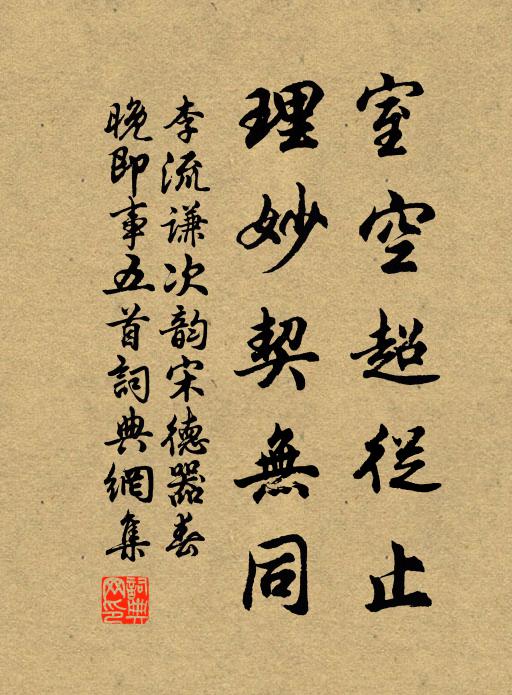 室空超從止
理妙契無同
李流謙次韵宋德器春
晚即事五首詞典網集
詞典
网印